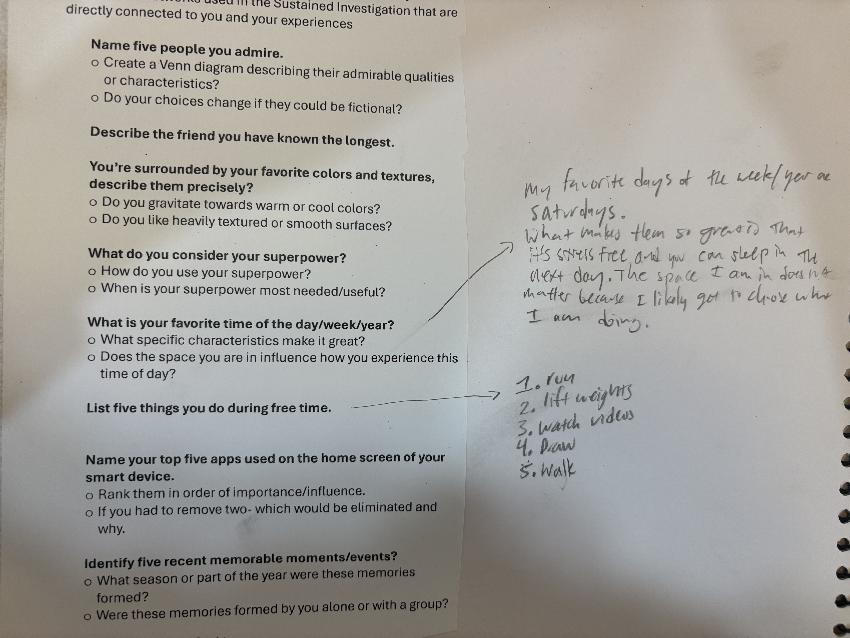 used in the Sustained Investigation that are
directly connected to you and your experiences
Name five people you admire.
o Create a Venn diagram describing their admirable qualities
or characteristics?
o Do your choices change if they could be fictional?
Describe the friend you have known the longest.
You're surrounded by your favorite colors and textures,
describe them precisely?
o Do you gravitate towards warm or cool colors?
o Do you like heavily textured or smooth surfaces?
What do you consider your superpower?
o How do you use your superpower?
o When is your superpower most needed/useful?
What is your favorite time of the day/week/year?
o What specific characteristics make it great?
o Does the space you are in influence how you experience this
time of day?
List five things you do during free time.
Name your top five apps used on the home screen of your
smart device.
o Rank them in order of importance/influence.
o If you had to remove two- which would be eliminated and
why.
Identify five recent memorable moments/events?
o What season or part of the year were these memories
formed?
o Were these memories formed by you alone or with a group?
My favorite days of the week/year are
Saturdays.
What makes them so great is that
it's stress free, and you can sleep in the
next day. The space I am in does not
matter because I likely got to chose what
I am doing.
1. run
2. lift weights
3. watch videos
4. Draw
5. walk